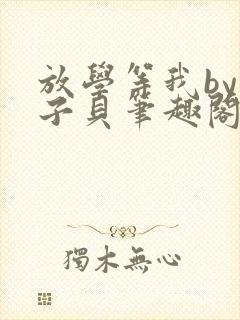 放學等我by
子貝筆趣閣
獨木無心